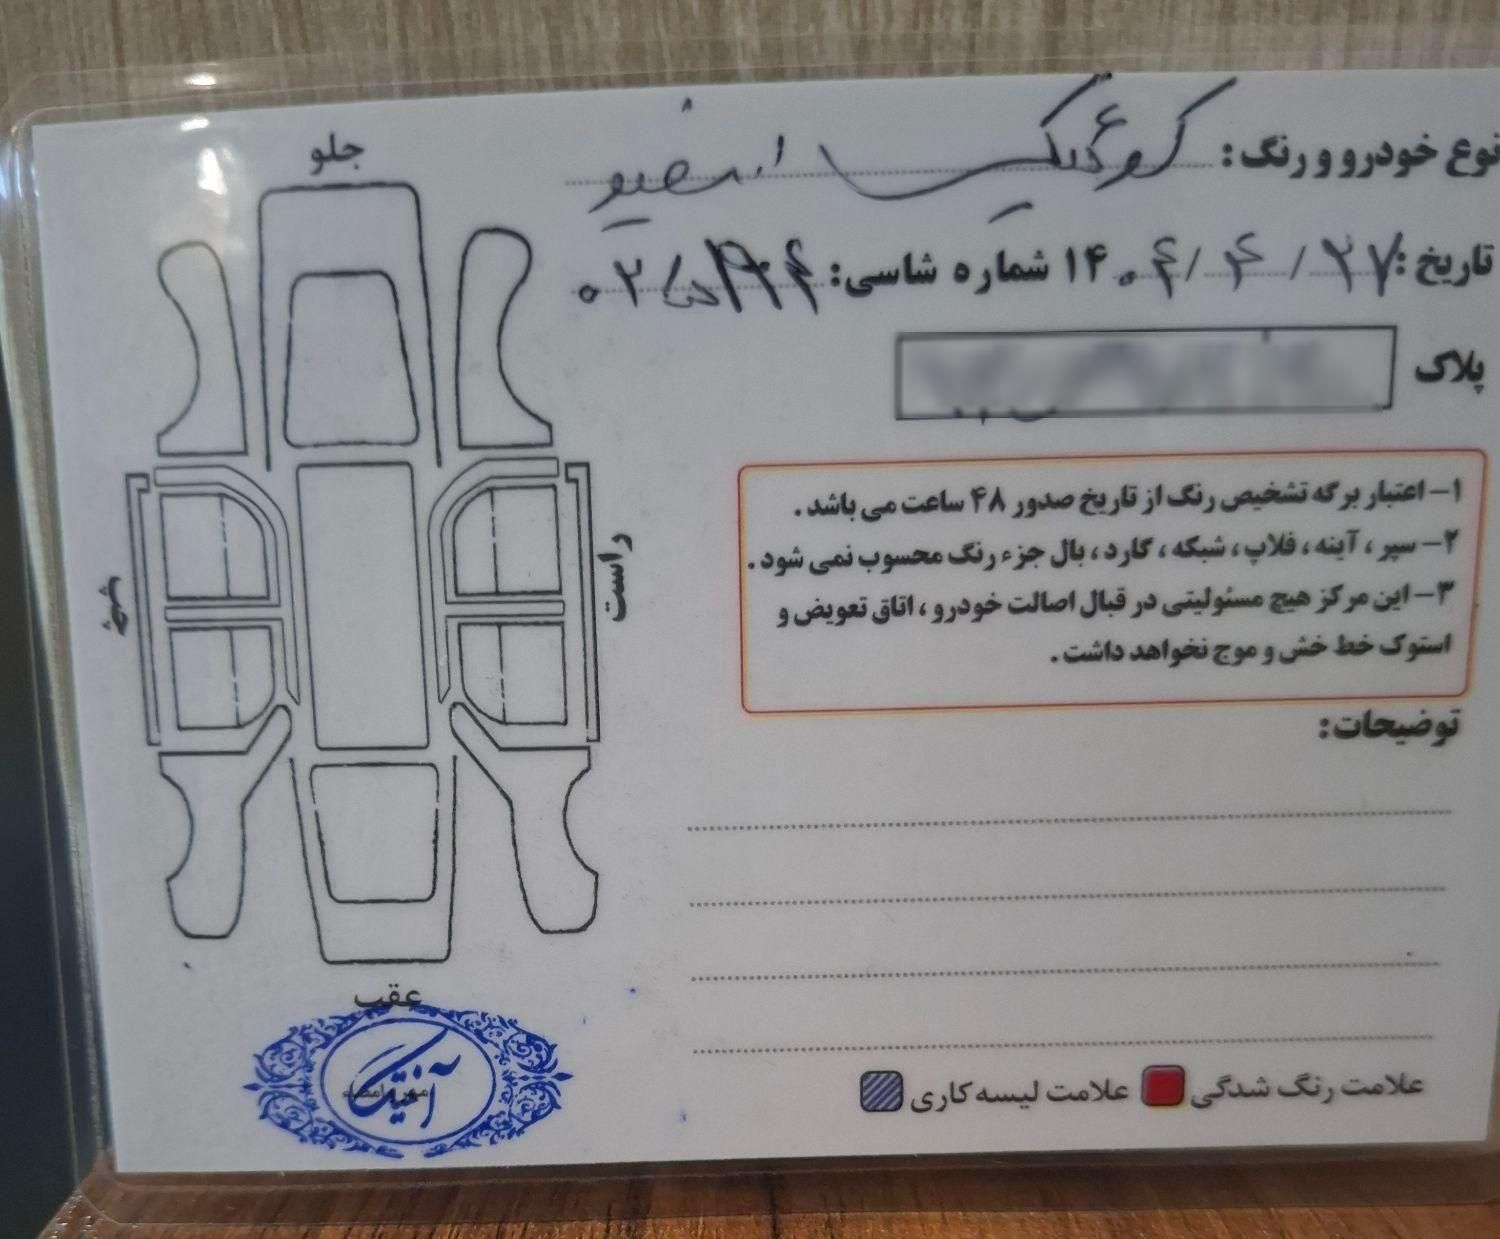 نوع خودرو و رنگ: کوئیک سفید
تاریخ: ۲۷ / ۴ / ۱۴۰۴ شماره شاسی:
پلاک
۱- اعتبار برگه تشخیص رنگ از تاریخ صدور ۴۸ ساعت می باشد .
۲- سپر ، آینه ، فلاپ ، شبکه ، گارد ، بال جزء رنگ محسوب نمی شود .
۳- این مرکز هیچ مسئولیتی در قبال اصالت خودرو ، اتاق تعویض و
استوک خط خش و موج نخواهد داشت .
توضیحات:
علامت رنگ شدگی علامت لیسه کاری
جلو
راست
چپ
عقب
مهر و امضاء
آنتیک